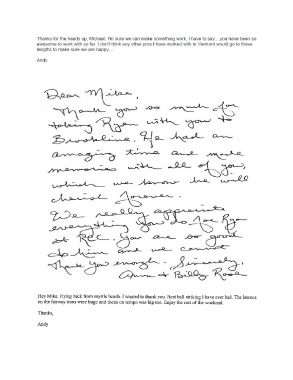 Thanks for the heads up, Michael. I'm sure we can make something work. I have to say…you have been so
awesome to work with so far. I don't think any other pros I have worked with in Vermont would go to these
lengths to make sure we are happy…
Andy
Dear Mike,
Thank you so much for
taking Ryan with you to
Brookline. He had an
amazing time and made
memories with all of you,
which we know he will
cherish forever.
We really appreciate
everything you do for Ryan
at RCC. You are so good
to him and we cannot
thank you enough. Sincerely,
& Billy
Hey Mike. Flying back from myrtle beach. I wanted to thank you. Best ball striking I have ever had. The lessons
on the fairway were huge and focus on tempo was big too. Enjoy the rest of the weekend.
Thanks,
Andy